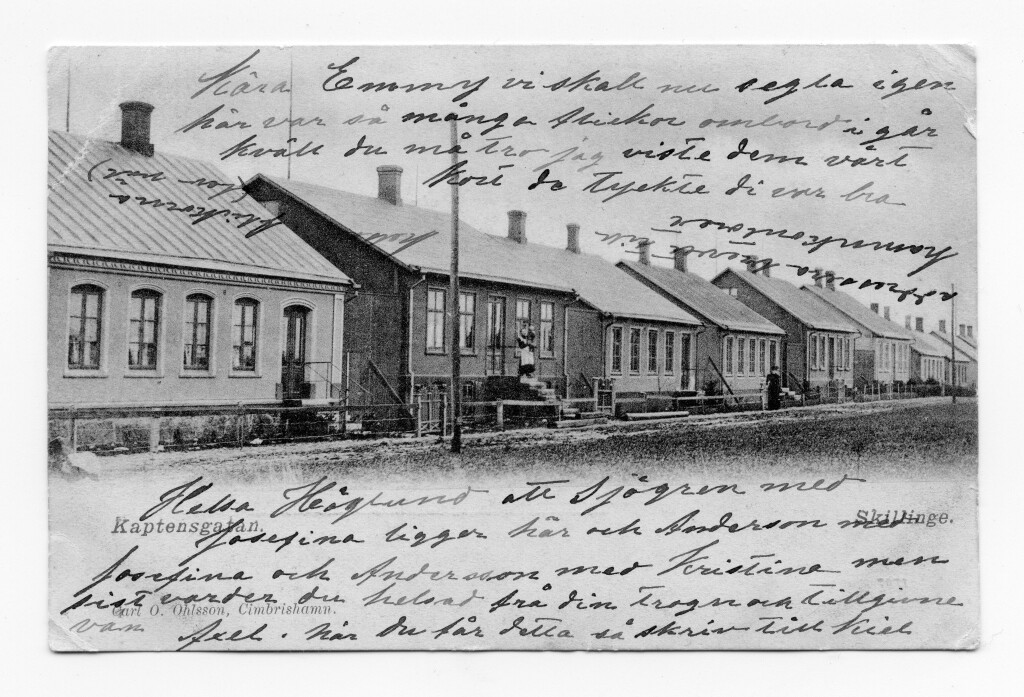 Kära Emmy vi skall nu segla igen
här var så många flickor ombord i går
kväll du må tro jag viste dem vårt
kort de tyckte di var bra
flickorna
(för när)
adressera
hamnkontoret
Helsa Höglund att Sjögren med
Kaptensgatan. Skillinge.
Josefina ligger här och Anderson med
Josefina och Andersson med Kristina men
sist varder du helsad från din trogne och tillgivne
Carl O. Ohlsson, Cimbrishamn.
vän Axel. när du får detta så skriv till Kiel